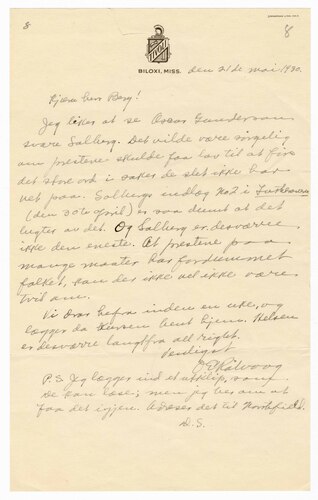 8
8
TIVOLI
BILOXI, MISS.
den 21de mai, 1930.
Kjære herr Berg!
Jeg likes at se Oscar Gunderson
svare Solberg. Det vilde være sørgelig
om prestene skulde faa lov til at føre
det store ord i saker de slet ikke har
vet paa. Solbergs indlæg No 2 i
(den 30te april) er saa dumt at det
lugter av det. Og Solberg er desværre
ikke den eneste. At prestene paa
mange maater har fordummet
folket, kan der ikke vel ikke være
tvil om.
Vi drar herfra inden en uke, og
lægger da kursen bent hjem. Helsen
er desværre langtfra all right.
Venligst
O. E. Rølvaag
P.S. Jeg lægger ind et utklip, som
De kan læse; men jeg ber om at
faa det igjen. Adresér det til Northfield.
D. S.